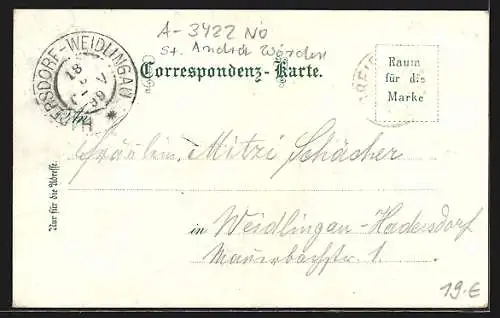 A-3422 NÖ
St. Andrä Wörden
HADERSDORF-WEIDLINGAU
18
5
99
Correspondenz-Karte.
Raum
für die
Marke
Fräulein Mitzi Schächer
Nur für die Adresse.
in Weidlingau-Hadersdorf
Mauerbachstr. 1
19.-€